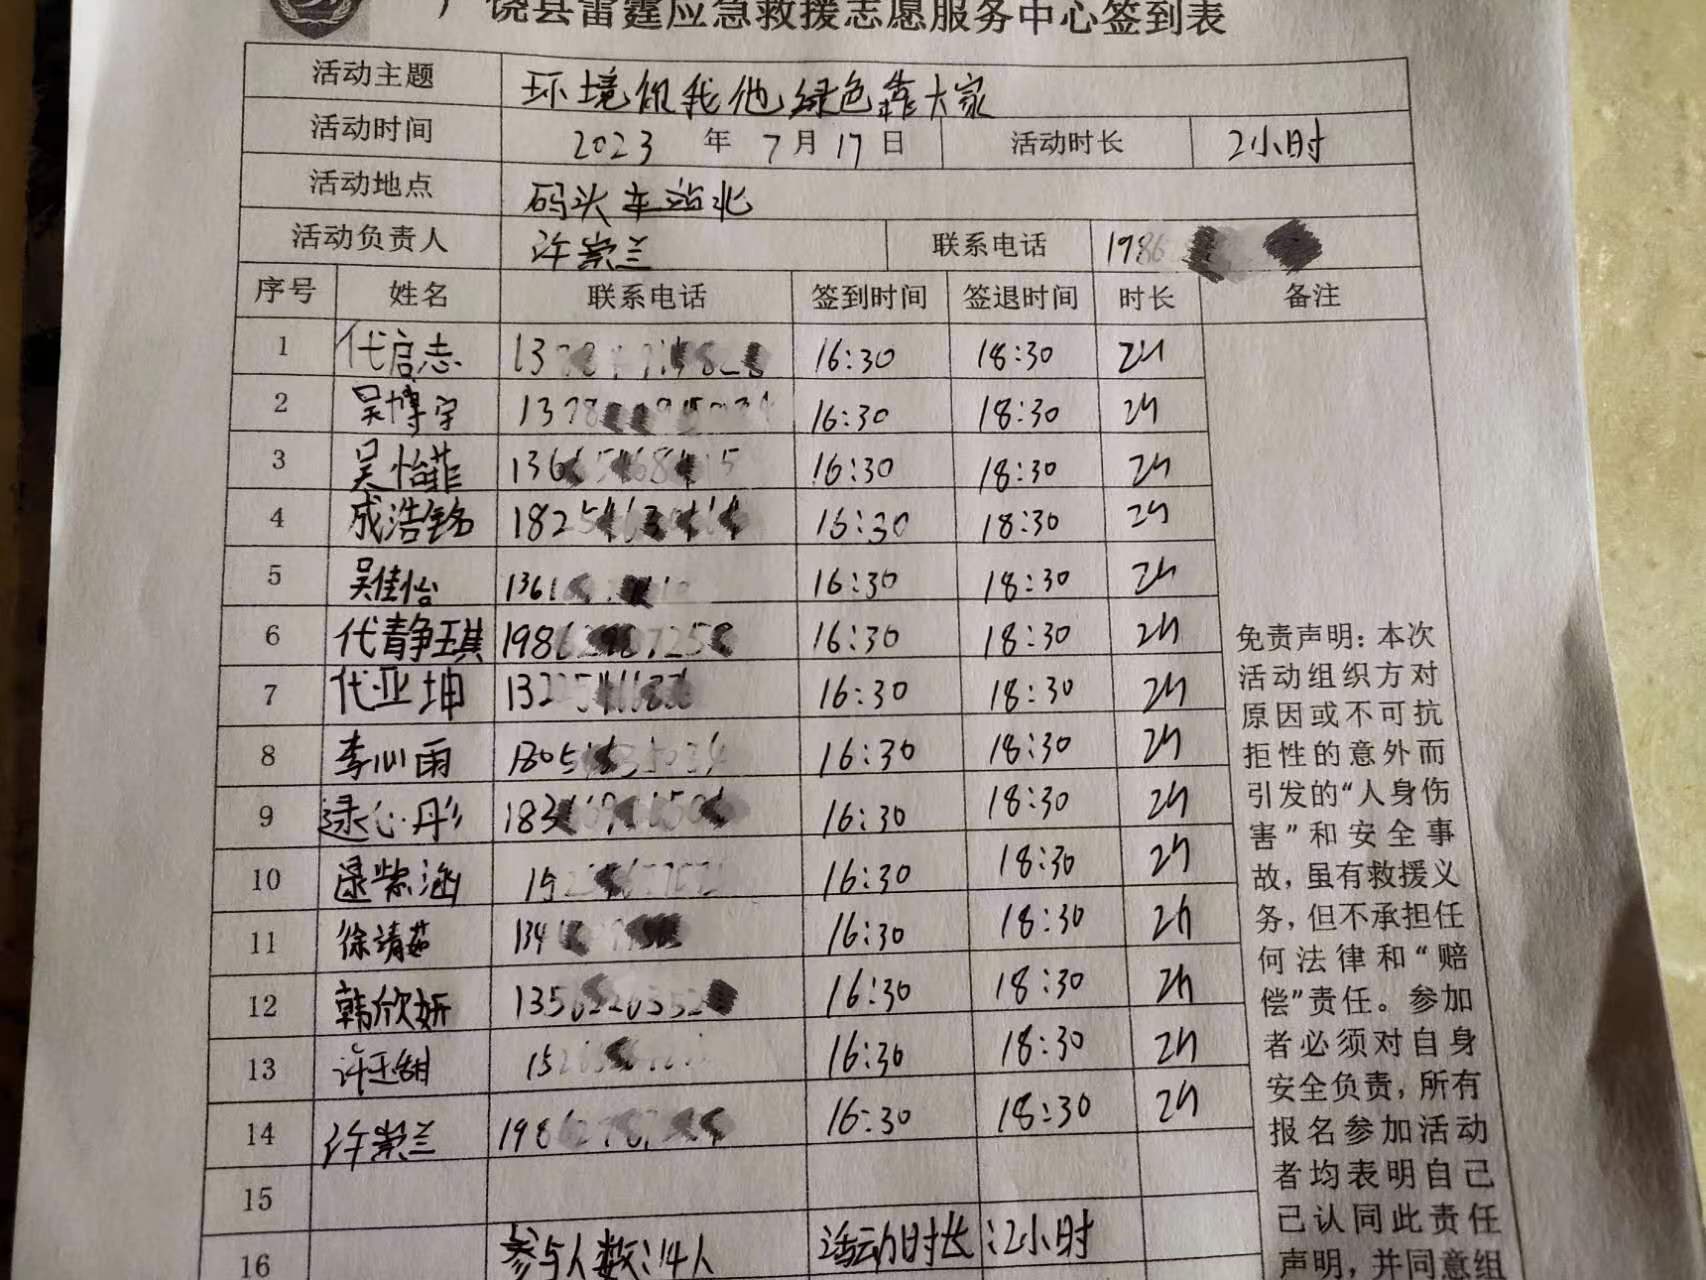 广饶县雷霆应急救援志愿服务中心签到表
活动主题 环境你我他绿色靠大家
活动时间 2023 年 7 月 17 日 活动时长 2小时
活动地点 码头车站北
活动负责人 许崇兰 联系电话 1986
序号 姓名 联系电话 签到时间 签退时间 时长 备注
1 代启志 16:30 18:30 2h
2 吴博宇 1378 16:30 18:30 2h
3 吴怡菲 136 16:30 18:30 2h
4 成浩铭 1825 16:30 18:30 2h
5 吴佳怡 1361 16:30 18:30 2h
6 代静琪 1986 16:30 18:30 2h
7 代亚坤 132 16:30 18:30 2h
8 李心雨 1805 16:30 18:30 2h
9 逯心彤 183 16:30 18:30 2h
10 逯紫涵 15 16:30 18:30 2h
11 徐靖茹 134 16:30 18:30 2h
12 韩欣妍 135 16:30 18:30 2h
13 许玉甜 15 16:30 18:30 2h
14 许崇兰 1986 16:30 18:30 2h
15
16 参与人数:14人 活动时长:2小时
免责声明：本次
活动组织方对
原因或不可抗
拒性的意外而
引发的“人身伤
害”和安全事
故，虽有救援义
务，但不承担任
何法律和“赔
偿”责任。参加
者必须对自身
安全负责，所有
报名参加活动
者均表明自己
已认同此责任
声明，并同意组